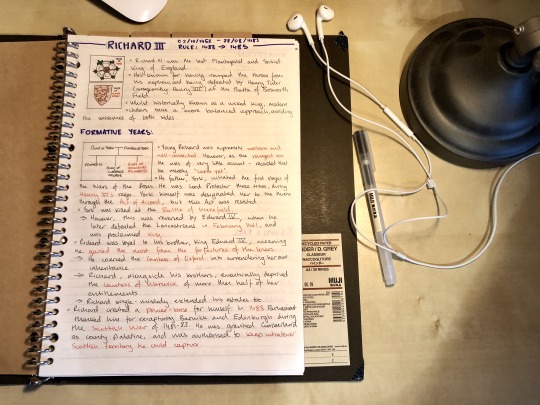 RICHARD III
02/10/1452 - 22/08/1485
RULE: 1483 → 1485
• Richard III was the last Plantagenet and Yorkist
King of England.
• Well known for having usurped the throne from
his nephew and being defeated by Henry Tudor
(consequently Henry VII) at the Battle of Bosworth
Field.
• Whilst historically known as a wicked king, modern
scholars take a more balanced approach, avoiding
the extremes of both sides.
FORMATIVE YEARS:
• Young Richard was supremely
well-connected. However, as the youngest son
he was of very little account - recorded that
he merely "liveth yet".
• His father, York, initiated the first stages of
the Wars of the Roses. He was Lord Protector three times during
Henry VI's reign. York himself was designated heir to the throne
through the Act of Accord, but this Act was resisted.
• York was killed at the Battle of Wakefield.
• However, this was reversed by Edward IV, when he
later defeated the Lancastrians in Easter, and
was proclaimed king.
• Richard was loyal to his brother, King Edward IV, meaning
he gained the most from the forfeitures of the losers.
→ He coerced the Countess of Oxford into surrendering her own
inheritance.
→ Richard, alongside his brothers, eventually deprived
the Countess of Warwick of more than half of her
entitlements.
→ Richard single-mindedly extended his estates to
• Richard created a power-base for himself. In 1483 Parliament
thanked him for recapturing Berwick and Edinburgh during
the Scottish War of 1481-83. He was granted Cumberland
as county palatine, and was authorised to keep whatever
Scottish territory he could capture.
RECYCLED PAPER
BINDER / D. GREY
CLASSEUR
A4 / 30 RINGS
MUJI